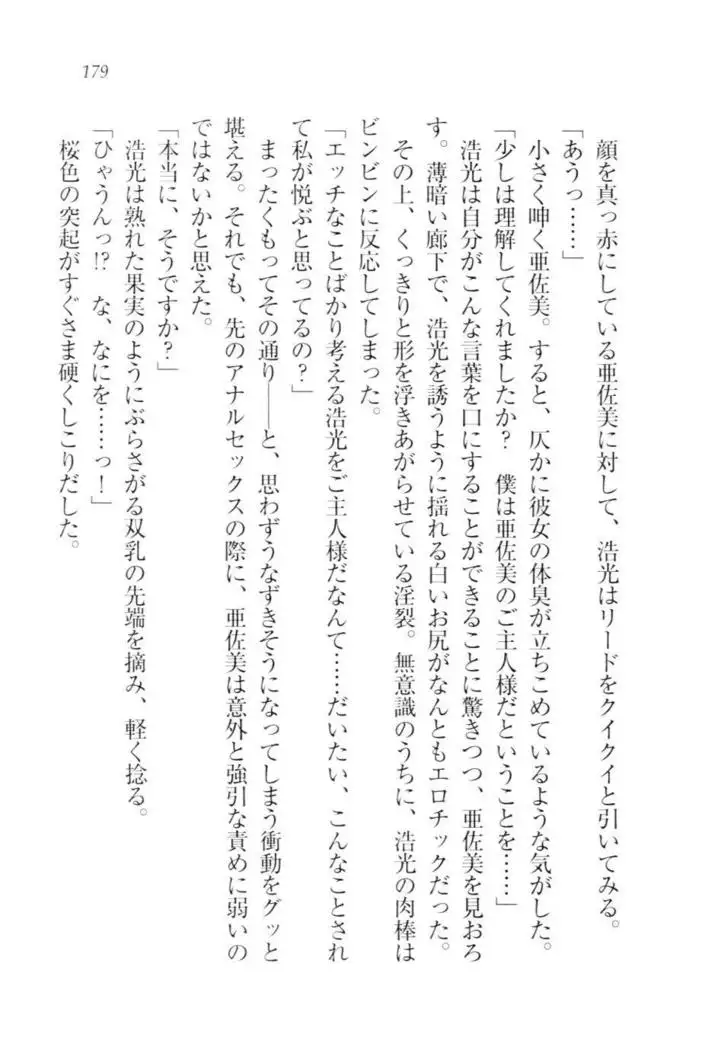 179
顔を真っ赤にしている亜佐美に対して、浩光はリードをクイクイと引いてみる。
「あうっ……」
小さく呻く亜佐美。すると、仄かに彼女の体臭が立ちこめているような気がした。
「少しは理解してくれましたか？　僕は亜佐美のご主人様だということを……」
浩光は自分がこんな言葉を口にすることができることに驚きつつ、亜佐美を見おろ
す。薄暗い廊下で、浩光を誘うように揺れる白いお尻がなんともエロチックだった。
その上、くっきりと形を浮きあがらせている淫裂。無意識のうちに、浩光の肉棒は
ビンビンに反応してしまった。
「エッチなことばかり考える浩光をご主人様だなんて……だいたい、こんなことされ
て私が悦ぶと思ってるの？」
まったくもってその通り――と、思わずうなずきそうになってしまう衝動をグッと
堪える。それでも、先のアナルセックスの際に、亜佐美は意外と強引な責めに弱いの
ではないかと思えた。
「本当に、そうですか？」
浩光は熟れた果実のようにぶらさがる双乳の先端を摘み、軽く捻る。
「ひゃうんっ!?　な、なにを……っ！」
桜色の突起がすぐさま硬くしこりだした。